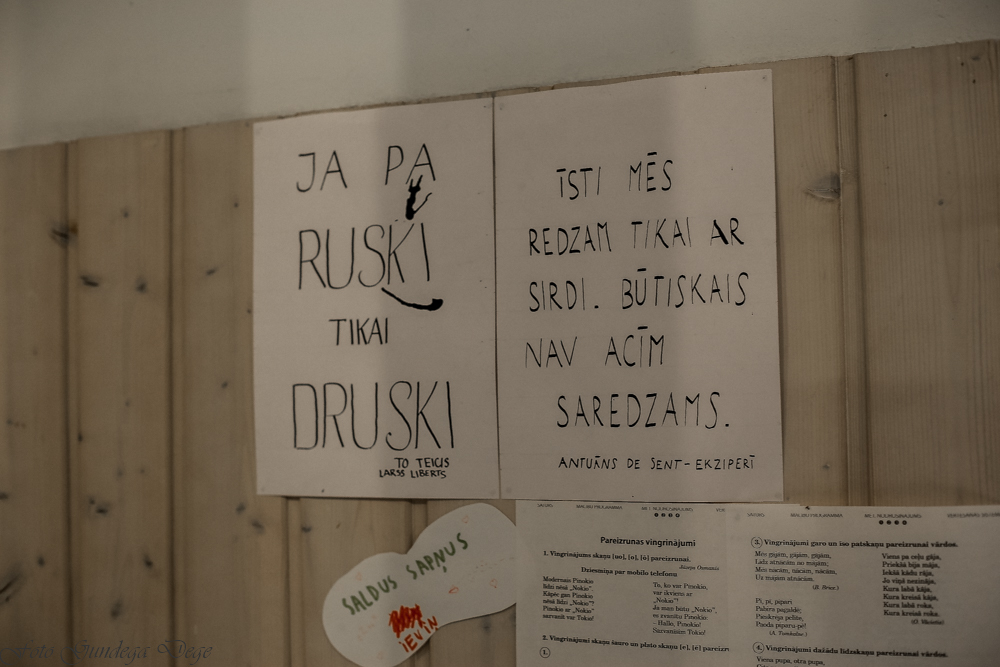 JA PA
RUSKI
TIKAI
DRUSKI
TO TEICIS
LARSS LIBERTS
ĪSTI MĒS
REDZAM TIKAI AR
SIRDI. BŪTISKAIS
NAV ACĪM
SAREDZAMS.
ANTUĀNS DE SENT-EKZIPERĪ
SALDUS SAPŅUS
IEVIN
Pareizrunas vingrinājumi
1. Vingrinājums skaņu [uo], [o], [ō] pareizrunai.
Dziesmiņa par mobilo telefonu
Modernais Pinokio
līdzi nēsā „Nokio”.
Kāpēc gan Pinokio
nēsā līdzi „Nokio”?
Pinokio ar „Nokio”
sarunāt var Tokio!
To, ko var Pinokio,
var ikviens ar
„Nokio”!
Ja man būtu „Nokio”,
es zvanītu Pinokio
– Hallo, Pinokio!
Sarunāsim Tokio!
2. Vingrinājumi skaņu šauro un plato skaņu [e], [ē] pareizrun
1.
3. Vingrinājumi garo un īso patskaņu pareizrunai vārdos.
Mēs gājām, gājām, gājām,
Līdz atnācām no mājām;
Mēs nācām, nācām, nācām,
Uz mājām atnācām.
Pī, pī, pīpari
Pūdera pagaldē;
Viens pa ceļu gāja,
Priekšā bija māja,
Iekšā kādu rāja,
Ja viņš nezināja,
Kura labā kāja,
Kura kreisā kāja,
Kura labā roka,
Kura kreisā roka.
4. Vingrinājumi dažādu līdzskaņu pareizrunai vārdos.
Viena pupa, otra pupa,
Foto Gundega Dege